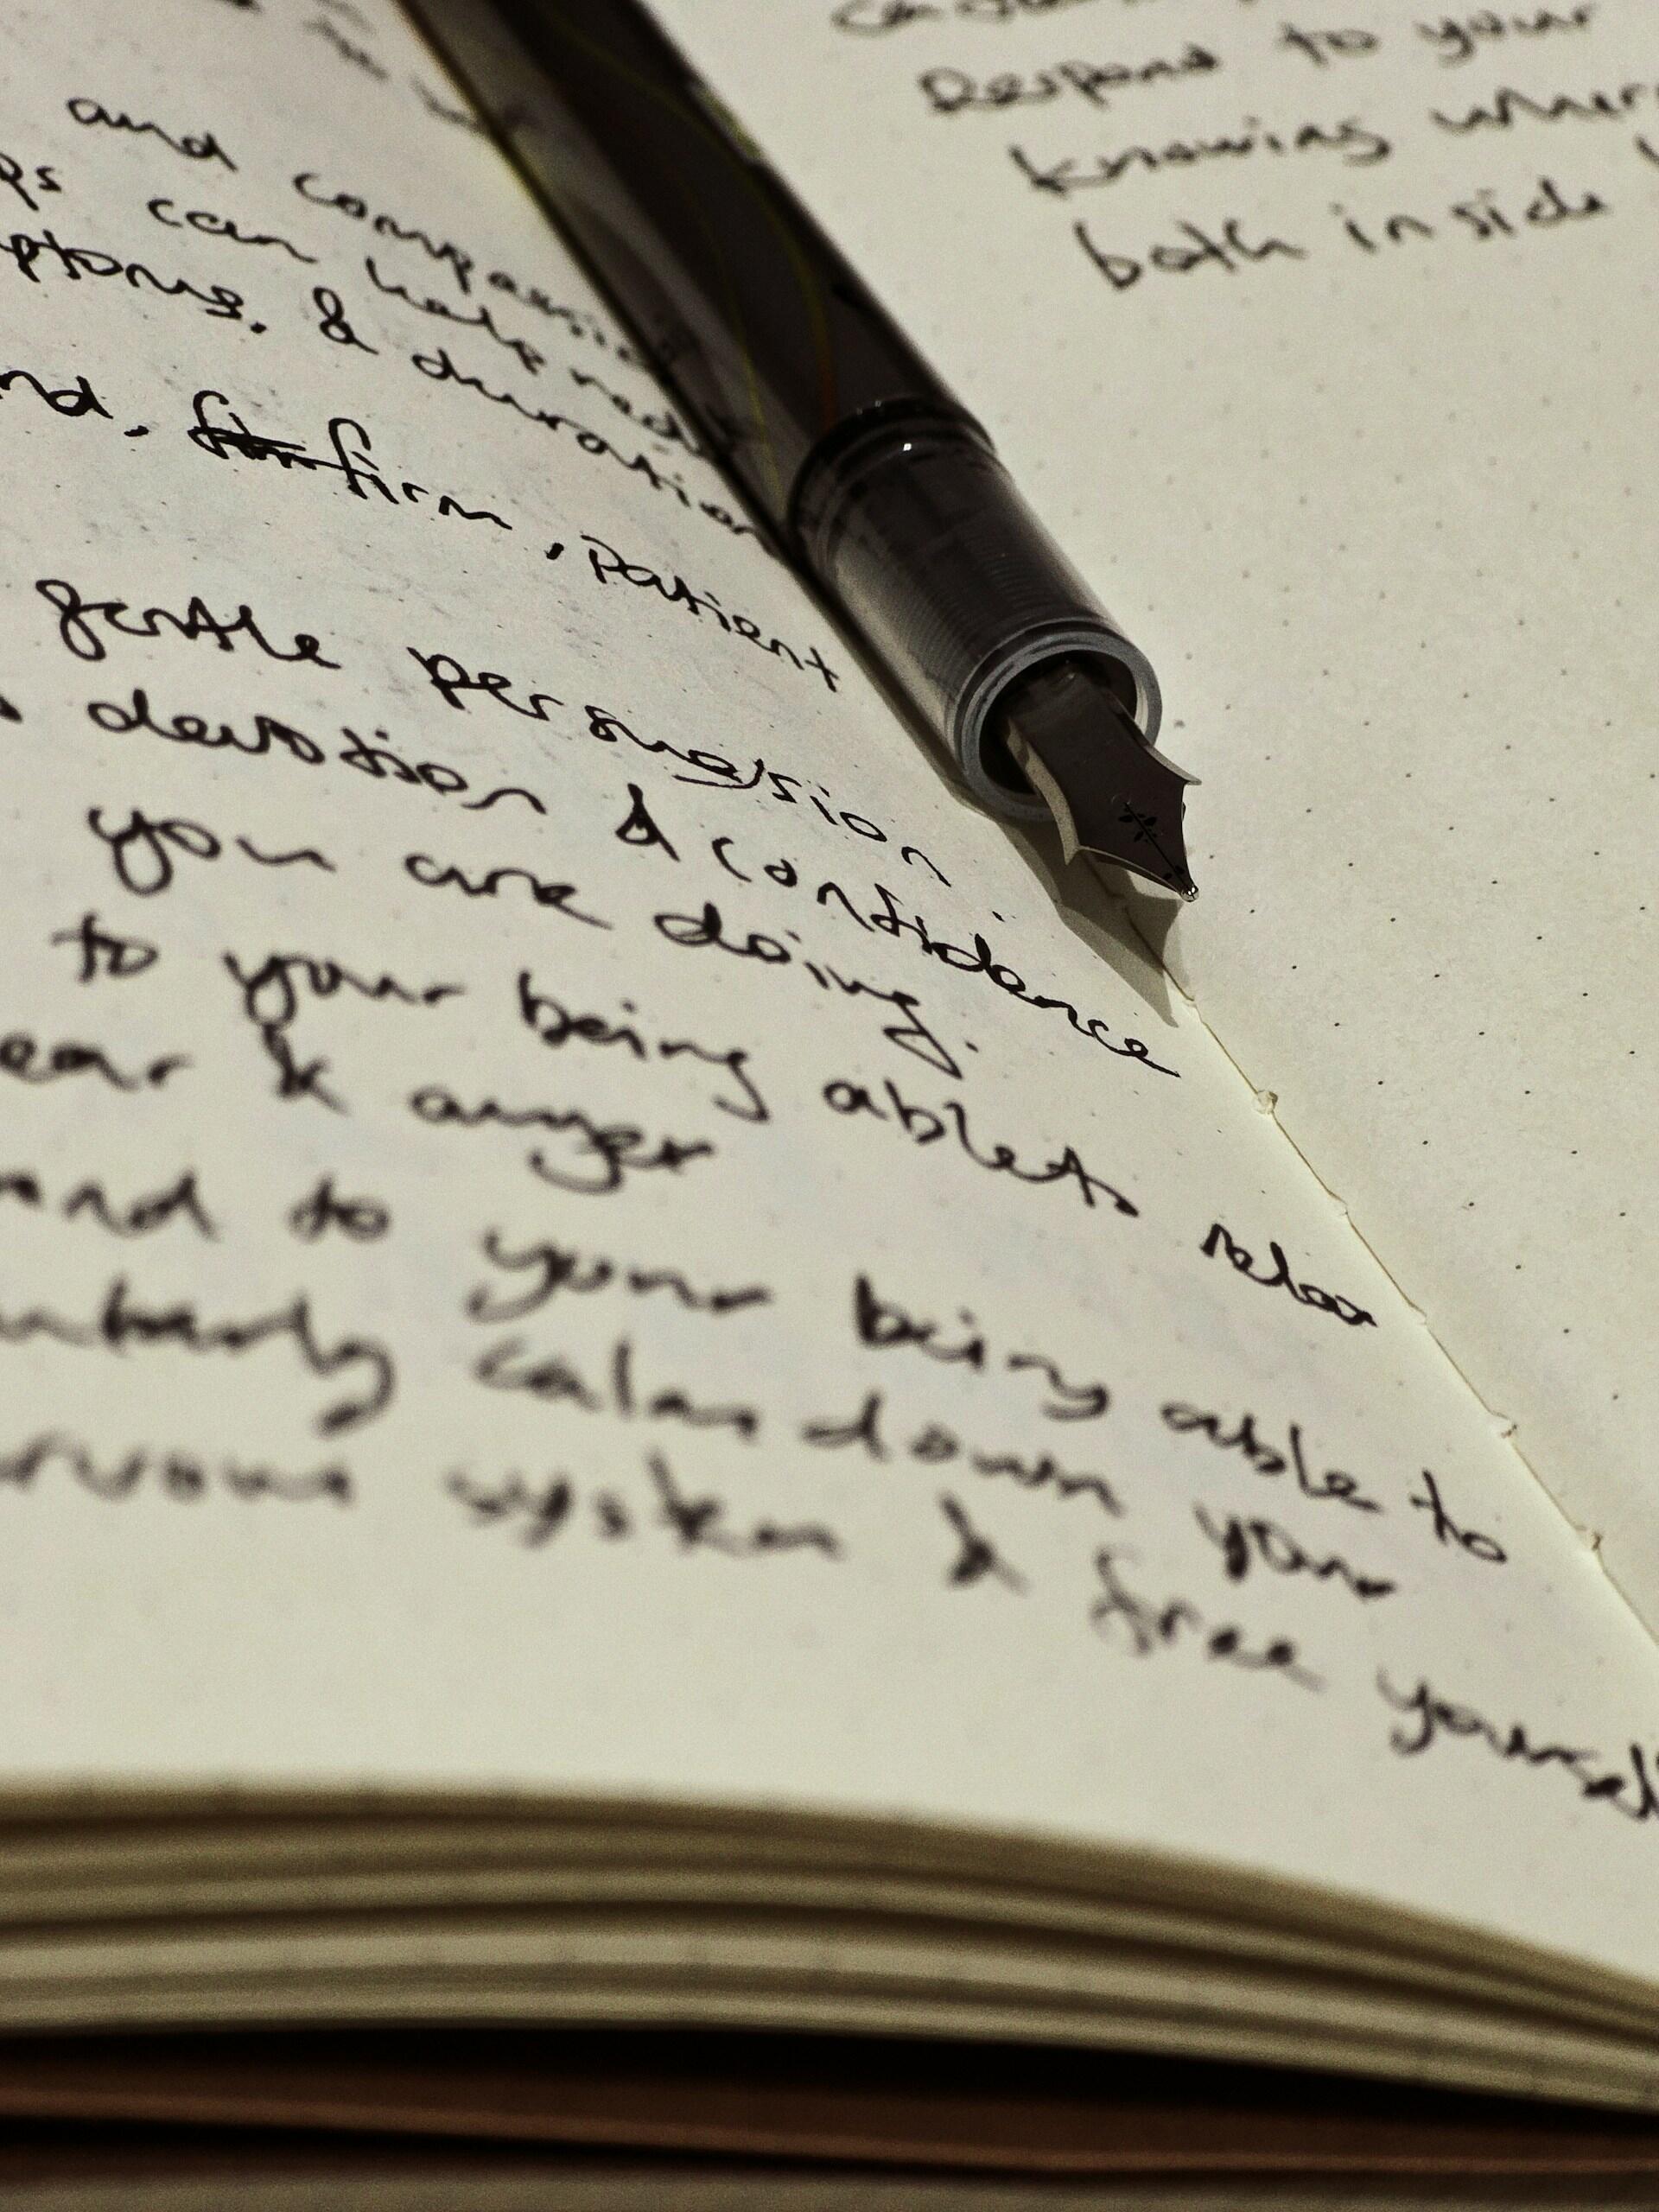 and compassion
can help redu
ptoms. & duration
nd, firm firm, patient
gentle persuasion
devotion & confidence
you are doing.
to your being able to relax
ear & anger
nd to your being able to
calm down your
rvous system & free yourself
Respond to your
knowing where
both inside